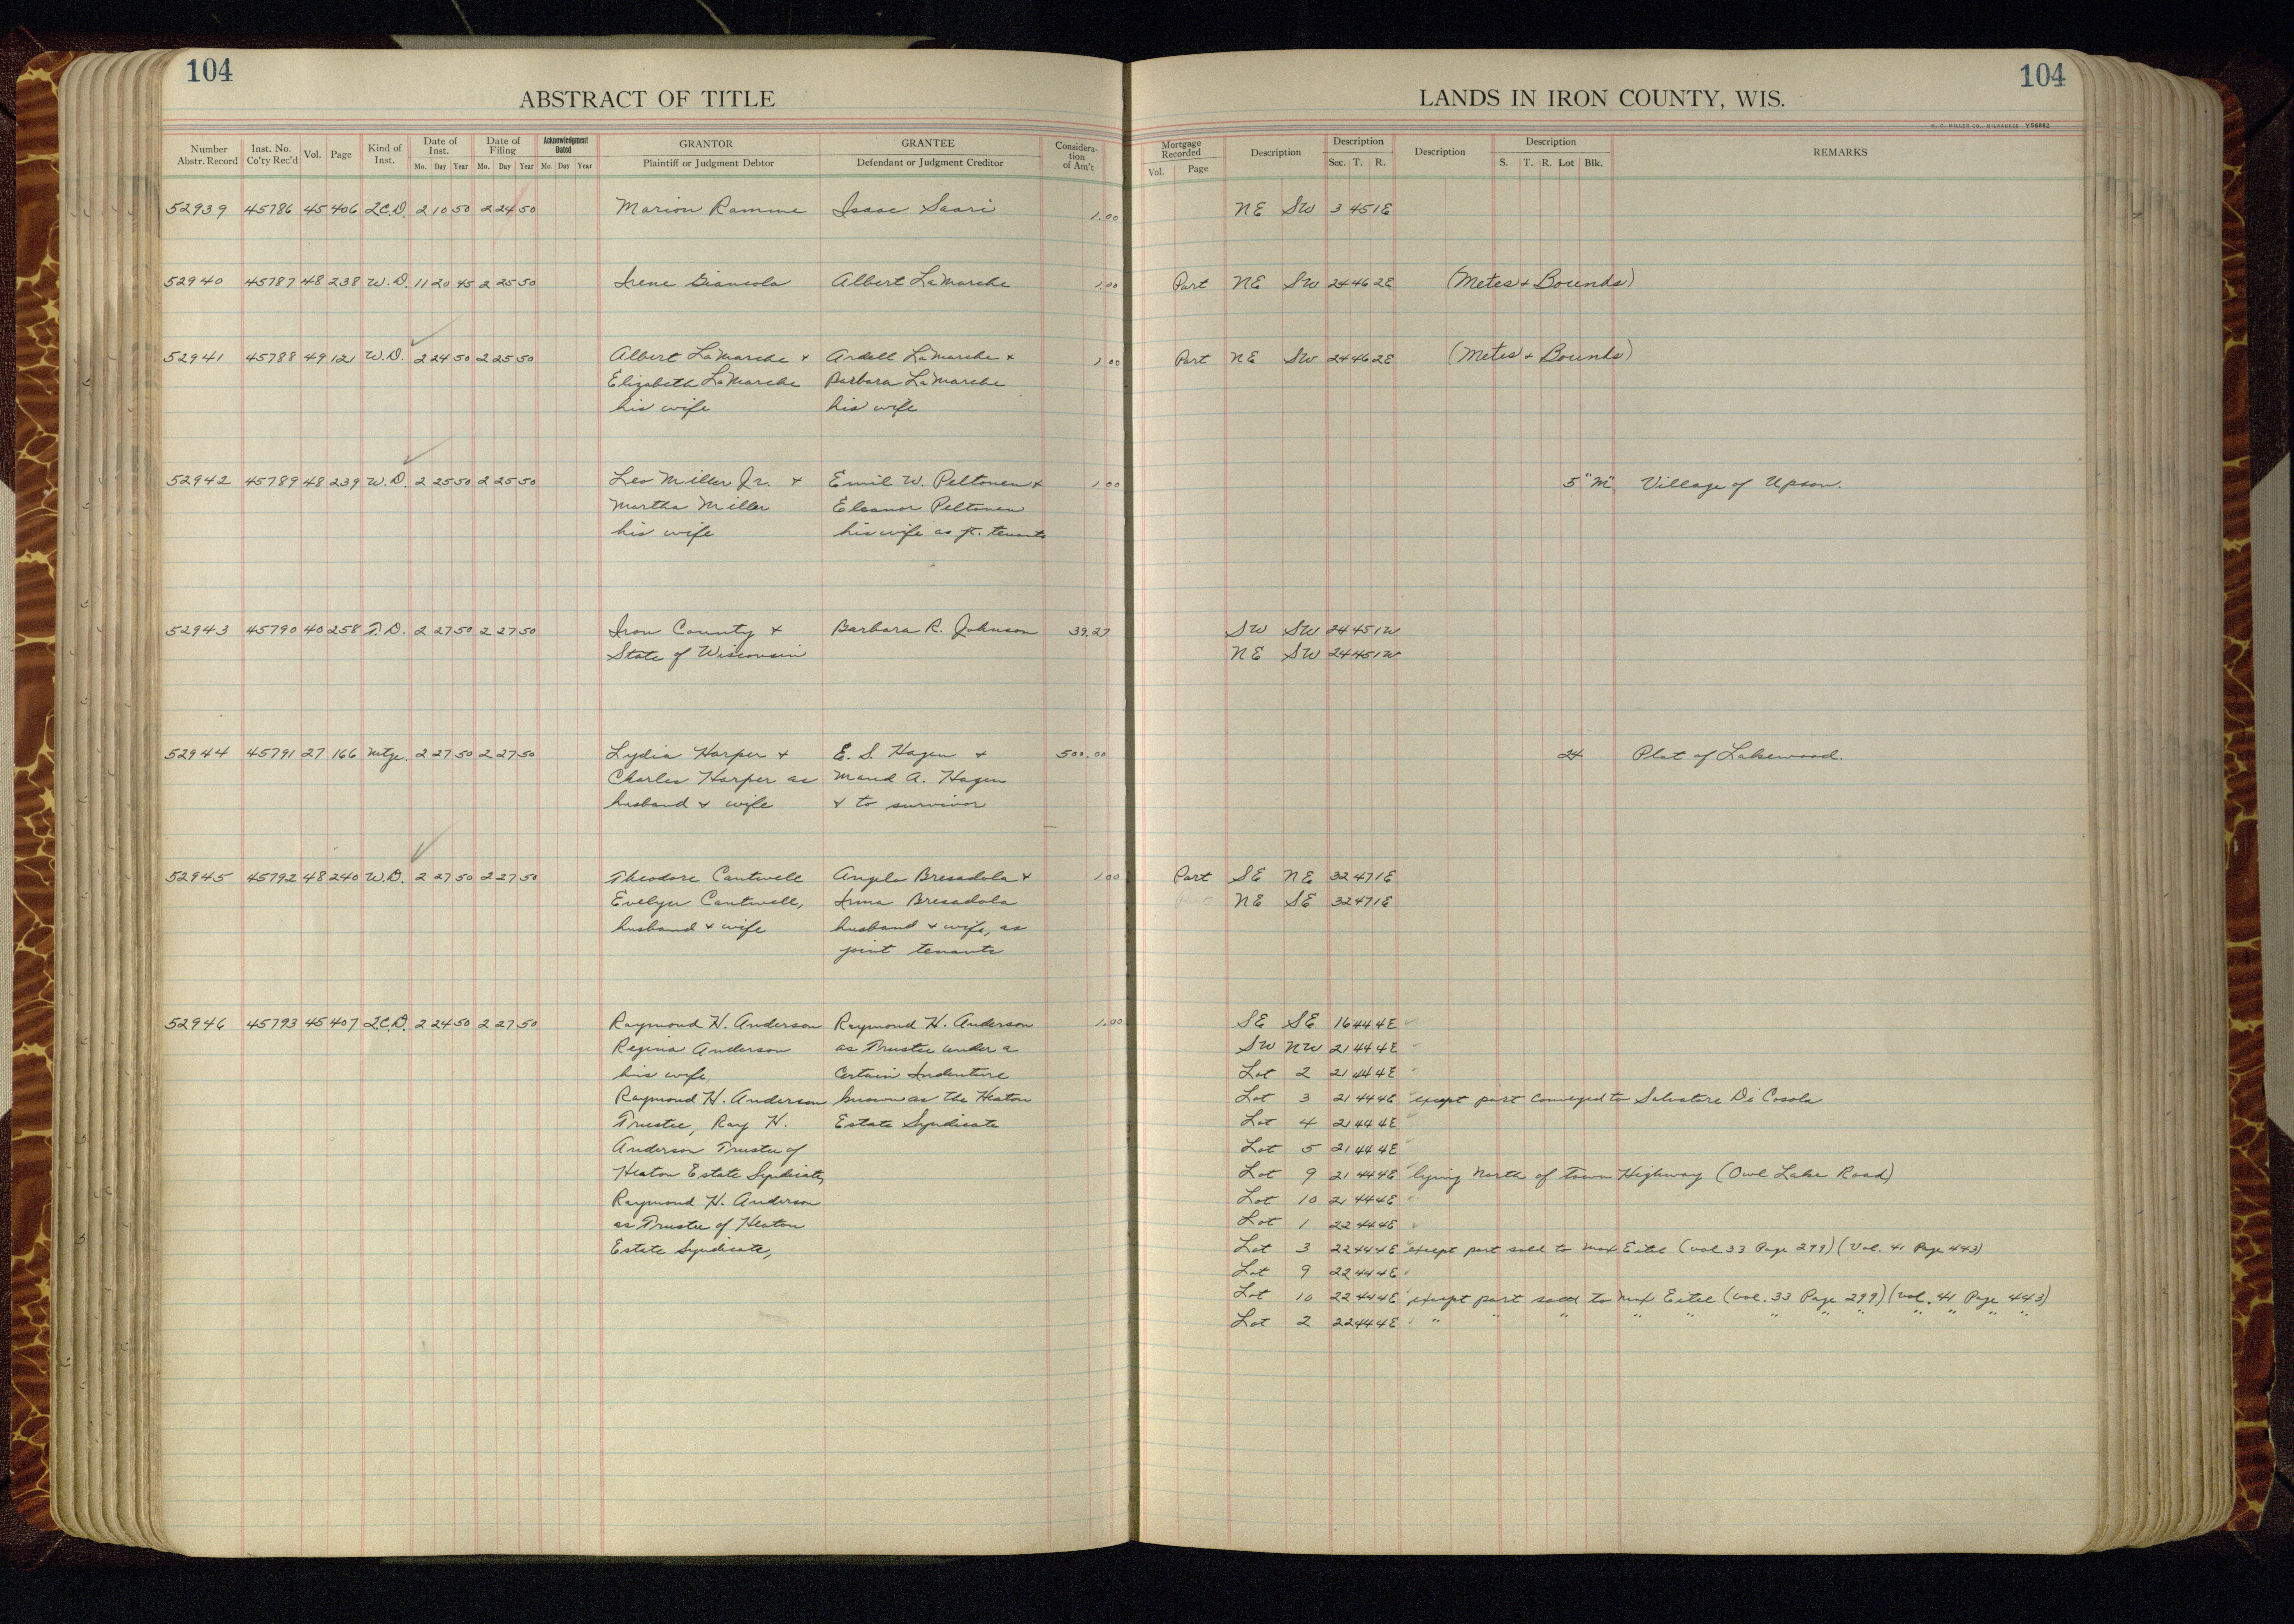 104
ABSTRACT OF TITLE
Number Abstr. Record | Inst. No. Co'ty Rec'd | Vol. | Page | Kind of Inst. | Date of Inst. Mo. Day Year | Date of Filing Mo. Day Year | Acknowledgment Dated Mo. Day Year | GRANTOR Plaintiff or Judgment Debtor | GRANTEE Defendant or Judgment Creditor | Considera-tion of Am't
52939 45786 45 406 Q.C.D. 2 10 50 2 24 50 Marion Ramme Isaac Saari 1.00
52940 45787 48 238 W.D. 11 20 45 2 25 50 Irene Giancola Albert LaMarche 1.00
52941 45788 49 121 W.D. 2 24 50 2 25 50 Albert LaMarche + Ardell LaMarche + 1 00
Elizabeth LaMarche Barbara LaMarche
his wife his wife
52942 45789 48 239 W.D. 2 25 50 2 25 50 Leo Miller Jr. + Emil W. Peltonen + 1 00
Martha Miller Eleanor Peltonen
his wife his wife as jt. tenants
52943 45790 40 258 T.D. 2 27 50 2 27 50 Iron County + Barbara R. Johnson 39.27
State of Wisconsin
52944 45791 27 166 Mtge. 2 27 50 2 27 50 Lydia Harper + E. S. Hagen + 500.00
Charles Harper as Maud A. Hagen
husband + wife + to survivor
52945 45792 48 240 W.D. 2 27 50 2 27 50 Theodore Cantwell Angelo Bresadola + 1.00
Evelyn Cantwell, Irma Bresadola
husband + wife husband + wife, as
joint tenants
52946 45793 45 407 Q.C.D. 2 24 50 2 27 50 Raymond H. Anderson Raymond H. Anderson 1.00
Regina Anderson as Trustee under a
his wife, Certain Indenture
Raymond H. Anderson known as the Heaton
Trustee, Ray H. Estate Syndicate
Anderson Trustee of
Heaton Estate Syndicate,
Raymond H. Anderson
as Trustee of Heaton
Estate Syndicate,
104
LANDS IN IRON COUNTY, WIS.
H. C. MILLER CO., MILWAUKEE V56882
Mortgage Recorded Vol. Page | Description | Description Sec. T. R. | Description | Description S. T. R. Lot Blk. | REMARKS
NE SW 3 45 1E
Part NE SW 24 46 2E (Metes + Bounds)
Part NE SW 24 46 2E (Metes + Bounds)
5 "M" Village of Upson.
SW SW 24 45 1W
NE SW 24 45 1W
24 Plat of Lakewood.
Part SE NE 32 47 1E
Part NE SE 32 47 1E
SE SE 16 44 4E
SW NW 21 44 4E
Lot 2 21 44 4E
Lot 3 21 44 4E except part conveyed to Salvatore Di Cosola
Lot 4 21 44 4E
Lot 5 21 44 4E
Lot 9 21 44 4E lying North of Town Highway (Owl Lake Road)
Lot 10 21 44 4E
Lot 1 22 44 4E
Lot 3 22 44 4E except part sold to Max Eitel (Vol. 33 Page 299) (Vol. 41 Page 443)
Lot 9 22 44 4E
Lot 10 22 44 4E except part sold to Max Eitel (Vol. 33 Page 299) (Vol. 41 Page 443)
Lot 2 22 44 4E " " " " " " " " " " " "